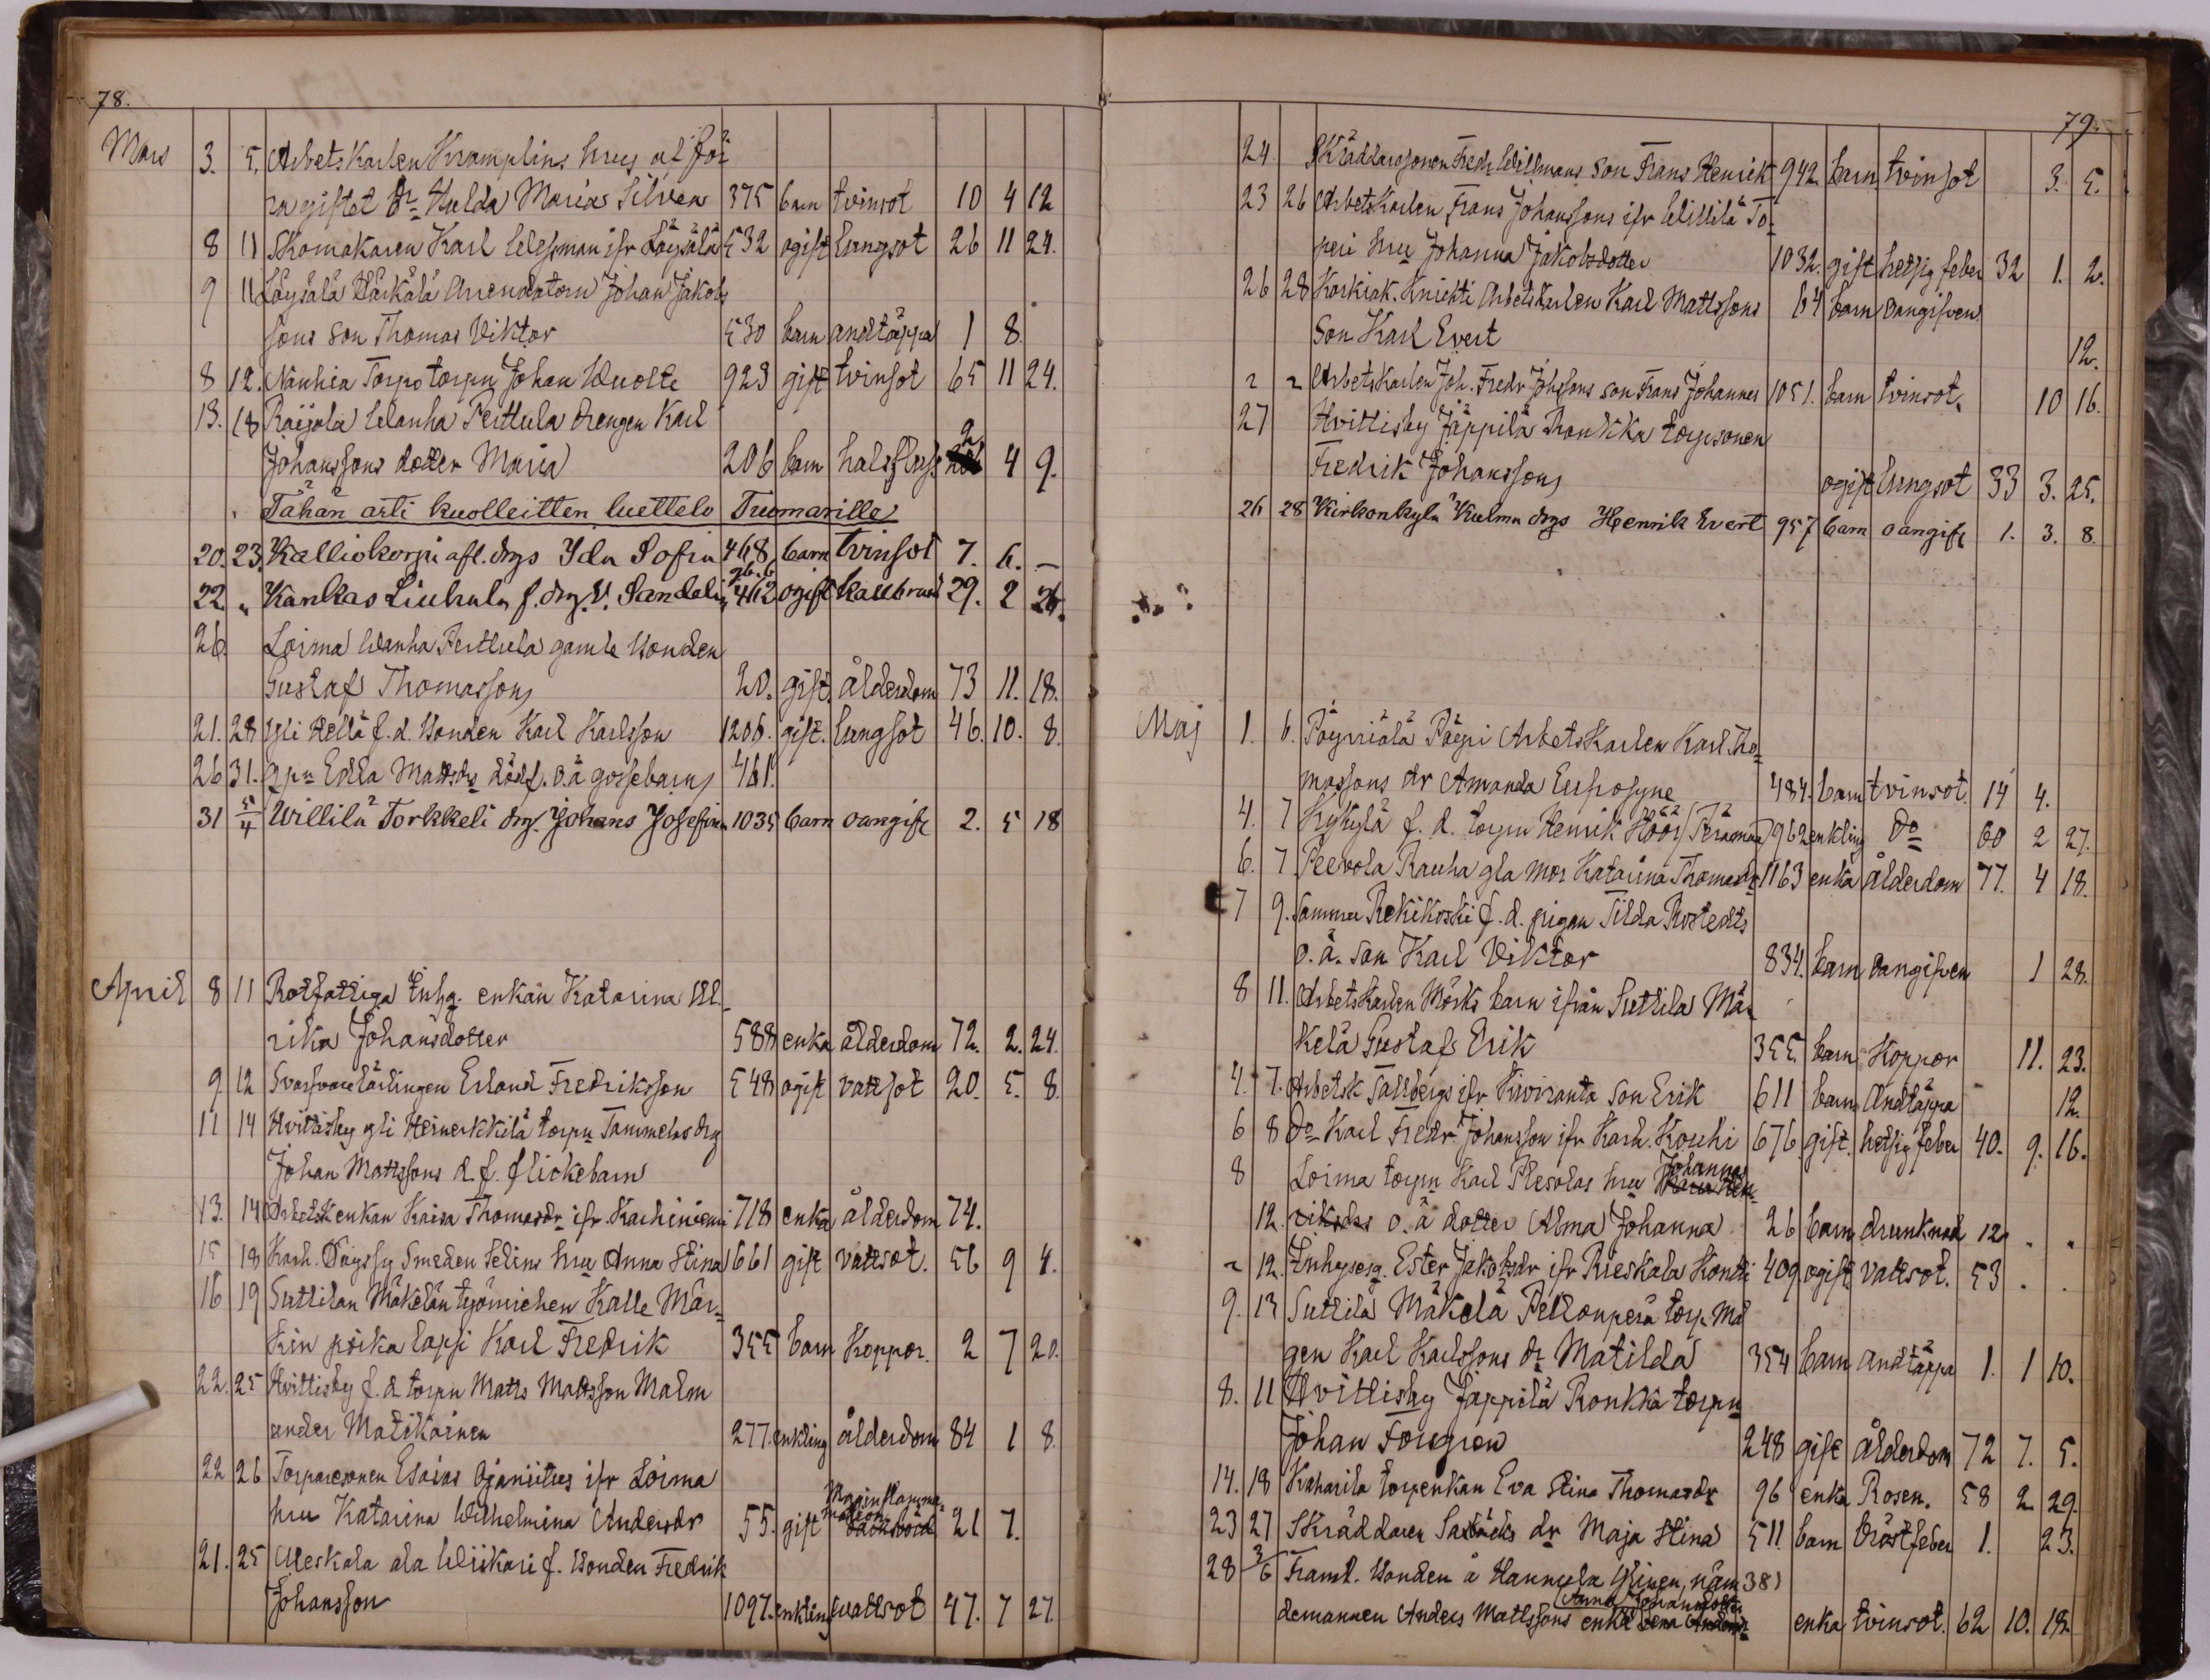 78.
Mars 3. 5. Arbetskarlen Kramplins hrus af för
ra giftet dr Hulda Marias Silvea 375 barn tvinsot 10 4 12
8 11 Skomakaren Karl Wessman ifr Löysälä 532 ogift lungsot 26 11 24.
9 11 Löysälä Härkälä Arrendatorn Johan Jakobs
sons son Thomas Viktor 530 barn andtäppa 1 8.
8 12. Nanhia Torpo torpn Johan Wuolte 923 gift tvinsot 65 11 24.
13. 18 Raijala Wanha Perttula drengen Karl
Johanssons dotter Maria 206 barn halsfluss 2 4 9.
Tähän asti kuolleitten luettelo Tuomarille
20. 23. Kalliokorpi afl. drgs Ida Sofia 468 barn tvinsot 7. 6. —
22 „ Kankas Liuhala f. drg. V. Sandelin 462 ogift kallbrand 29. 2 26.
26. Loima Wanha Perttula gamle bonden
Gustaf Thomasson 20. gift. ålderdom 73 11. 18.
21. 28 Yli Hellä f.d. bonden Karl Karlsson 1206. gift. lungsot 46. 10. 8.
26 31. Qpn Edla Mattsdr dödf. o.ä gossebarn 461.
31 5/4 Willilä Torkkeli drg. Johans Josefina 1035 barn oangift 2. 5 18
April 8 11 Rotfattiga Inhg. enkan Katarina Ul-
rika Johansdotter 588 enka ålderdom 72. 2. 24.
9. 12 Svarfvarelärlingen Erland Fredriksson 548 ogift vattsot 20. 5. 8.
11 14 Hvittisby yli Heinerkkilä torpn Tammelas drg
Johan Mattssons d.f. flickebarn
13. 14 Arbetsk enkan Kaisa Thomasdr ifr. Karhiniemi 718 enka ålderdom 74.
15 18 Karh. Smeden Selins hru Anna Stina 1661 gift vattsot. 56 9 4.
16 19 Suttilan Mäkelän työmiehen Kalle Mär-
kin poika lapsi Karl Fredrik 355 barn Koppor. 2 7 20.
22. 25 Hvittisby f.d. torpn Matts Mattsson Malm
under Matikainen 277. enkling ålderdom 84 1 8.
22 26 Torparesonen Esaias Ojaniitus ifr Loima
hru Katarina Wilhelmina Andersdr 55. gift 21 7.
21. 25 Meskala ala Wiikari f. bonden Fredrik
Johansson 1097. enkling vattsot 47. 7 27
79.
24. Skräddaresonen Fredr Willmans son Frans Henrik 942 barn tvinsot 3. 5.
23 26 Arbetskarlen Frans Johanssons ifr Willilä To-
peri hru Johanna Jakobsdotter 1032. gift hetsig feber 32 1. 2.
26 28 Karkiak. Knichti Arbetskarlen Karl Mattssons 64 barn oangifven
Son Karl Evert 12.
Arbetskarlen Joh. Fredr Johssons son Frans Johannes 1051. barn tvinsot. 10 16.
27 Hvittisby Jäppilä Ronkka torpsonen
Fredrik Johansson ogift lungsot 33 3. 25.
26 28 Kirkonkylä Kulma drgs Henrik Evert 957 barn oangift 1. 3. 8.
Maj 1. 6. Pöyriälä Pöyri Arbetskarlen Karl Tho-
massons dr Amanda Eufrosyne 484. barn tvinsot 14 4.
4. 7 Kykylä f.d. torpn Henrik Höör 962 enkling do 60 2 27.
6. 7 Peevola Rauha gla mor Katarina Thomasdr 1163 enka ålderdom 77. 4 18.
7 9. Sammu Rekikoski f.d. pigan Tilda Rostedts
o.ä. son Karl Viktor 834. barn oangifven 1 28.
8 11. Arbetskarlen Mörks barn ifrån Suttila Mä-
kelä Gustaf Erik 355. barn Koppor 11. 23.
4. 7. Arbetsk Tallbergs ifr Kiviranta son Erik 611 barn Andtäppa 12.
6 8 do Karl Fredr. Johansson ifr Karh. Kouhi 676 gift. hetsig feber 40. 9. 16.
8 Loima torpn Karl Plesolas hru Johannas
12. o.ä dotter Alma Johanna 26 barn drunknad 12
12. Inhyseq. Ester Jakobsdr ifr Rieskala Kontti 409 ogift vattsot. 53 . .
9. 13 Suttilä Mäkelä Pellonperä torp. Må
gen Karl Karlssons dr Matilda 354 barn andtäppa 1. 1 10.
8. 11 Hvittisby Jäppilä Ronkka torpn
Johan Forsgren 248 gift ålderdom 72 7. 5.
14. 18 Kaharila torpenkan Eva Stina Thomasdr 96 enka Rosen. 58 2 29.
23 27 Skräddaren Saxbäcks dr Maja Stina 511. barn bröstfeber 1. 23.
28 3/6 Framl. bonden å Hannula Yliven, näm- 381
demannen Anders Mattssons enka Anna Johansdotter enka tvinsot. 62 10. 18.